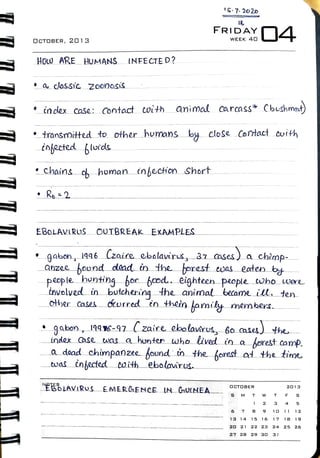 15-7-2020
12
FRIDAY 04
OCTOBER, 2013
WEEK 40
HOW ARE HUMANS INFECTED?
• a classic zoonosis
• index case: contact with animal carcass* (bushmeat)
• transmitted to other humans by close contact with
infected fluids
• chains of human infection short
• R₀ = 2
EBOLAVIRUS OUTBREAK EXAMPLES
• gabon, 1996 (zaire ebolavirus, 37 cases) a chimp-
anzee found dead in the forest was eaten by
people hunting for food. eighteen people who were
involved in butchering the animal became ill. ten
other cases occurred in their family members.
• gabon, 1996-97 (zaire ebolavirus, 60 cases) the
index case was a hunter who lived in a forest camp.
a dead chimpanzee found in the forest at the time
was infected with ebolavirus.
NOTES
EBOLAVIRUS EMERGENCE IN GUINEA
OCTOBER 2013
S M T W T F S
1 2 3 4 5
6 7 8 9 10 11 12
13 14 15 16 17 18 19
20 21 22 23 24 25 26
27 28 29 30 31